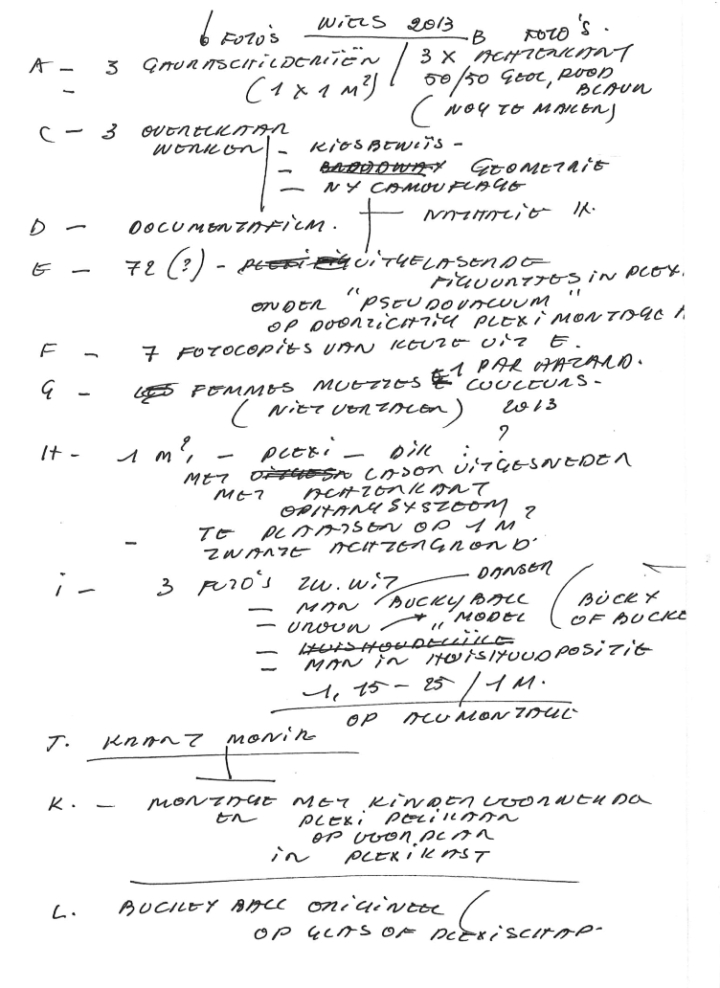 6 FOTO'S WIELS 2013 B FOTO'S.
A - 3 GAURASCHILDERIJEN / 3 X ACHTERKANT
- (1 X 1 M²) / 50/50 GEEL, ROOD
BLAUW
(NOG TE MAKEN)
C - 3 OVERELKAAR
WERKEN - KIESBEWIJS -
- BROODWAY GEOMETRIE
- NY CAMOUFLAGE
D - DOCUMENTAFILM. - NATHALIE H.
E - 72 (?) - UITGELASERDE
FIGUURTJES IN PLEX.
ONDER "PSEUDOVACUUM"
OP DOORZICHTIG PLEXI MONTAGE
F - 7 FOTOCOPIES VAN KEUZE UIT E.
1 PAR HAZARD.
G - LES FEMMES MUETTES E COULEURS -
(NIET VERTALEN) 2013
H - 1 M², - PLEXI - DIK : ?
MET LASER UITGESNEDEN
MET ACHTERKANT
OPHANGSYSTEEM ?
TE PLAATSEN OP 1 M
- ZWARTE ACHTERGROND.
i - 3 FOTO'S ZW. WIT DANSER
- MAN BUCKYBALL (BUCKY
- VROUW " MODEL OF BUCKE
- HUISHOUDELIJKE
- MAN IN HUISHOUDPOSITIE
1,15 - 25 / 1 M.
OP ALUMONTAGE
J. KAART MONIK
K. - MONTAGE MET KINDERVOORWERP
EN PLEXI PELIKAAN
OP VOORPLAN
IN PLEXIKAST
L. BUCKEY BALL ORIGINEEL (
OP GLAS OF PLEXISCHAP.